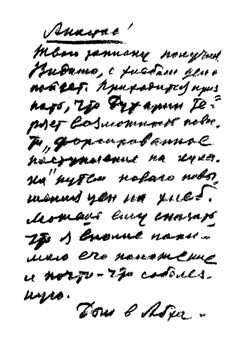 Твою записку получил.
Видимо, с хлебом дело
пойдет. Приходится приз
нать, что Бухарин те-
ряет возможность повес
ти „форсированное
наступление на кула
ка" путем нового повы
шения цен на хлеб.
Можешь ему сказать
что я вполне пони-
маю его положение
и почти-что соболез
ную.
в